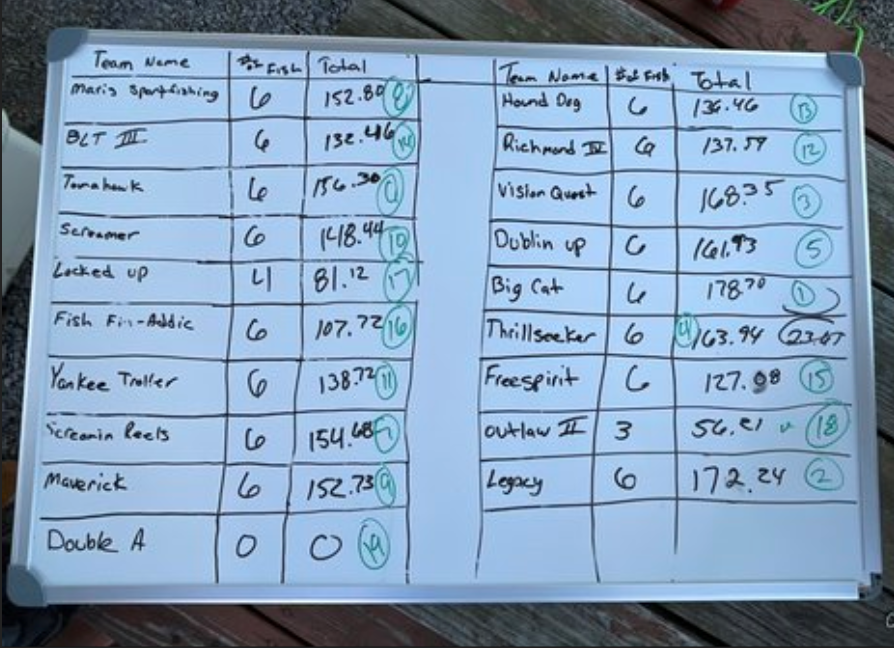 Team Name # of Fish Total
Maris Sportfishing 6 152.80 8
BLT III 6 132.46 14
Tomahawk 6 156.30 6
Screamer 6 148.44 10
Locked up 4 81.12 17
Fish Fin-Addic 6 107.72 16
Yankee Troller 6 138.72 11
Screamin Reels 6 154.68 7
Maverick 6 152.73 9
Double A 0 0 19
Team Name # of Fish Total
Hound Dog 6 136.46 13
Richmond IV 6 137.59 12
Vision Quest 6 168.35 3
Dublin up 6 161.93 5
Big Cat 6 178.70 1
Thrillseeker 6 4 163.94 23.07
Freespirit 6 127.98 15
Outlaw II 3 56.21 18
Legacy 6 172.24 2